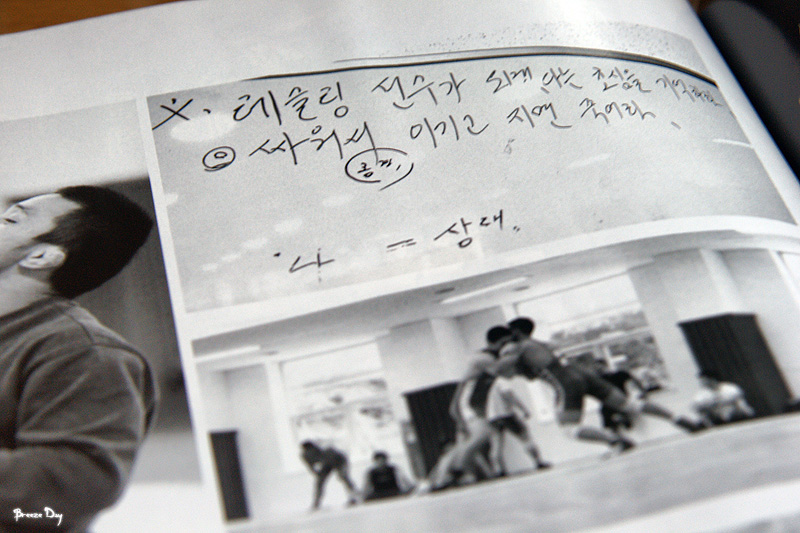 ※. 레슬링 선수가 되게 초심을
◎ 싸워서 이기고 지면 죽어라.
나 = 상대.
Breeze Day